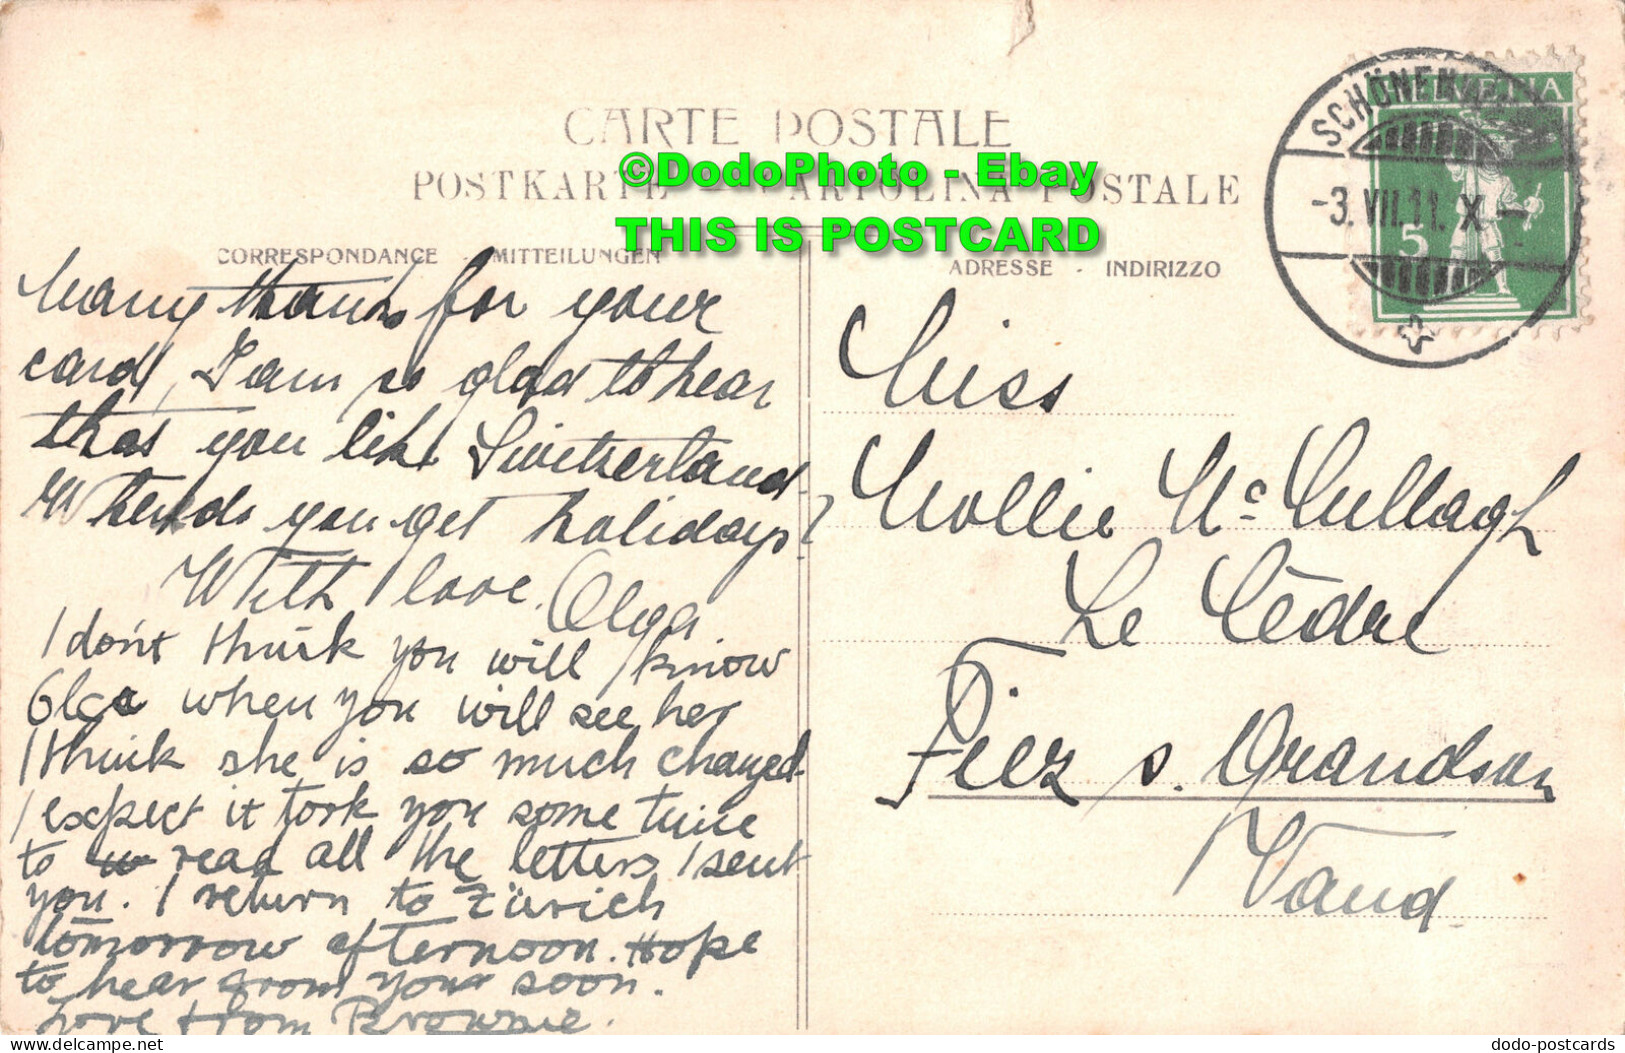 CARTE POSTALE
©DodoPhoto - Ebay
POSTKARTE - CARTOLINA POSTALE
THIS IS POSTCARD
CORRESPONDANCE - MITTEILUNGEN
ADRESSE - INDIRIZZO
HELVETIA
5
SCHÖNEN
-3.VII.11. X-
Many thanks for your
card, I am so glad to hear
that you like Switzerland
When do you get holidays?
With love. Olga.
I don't think you will know
Olga when you will see her
I think she is so much changed.
I expect it took you some time
to read all the letters I sent
you. I return to Zürich
tomorrow afternoon. Hope
to hear from you soon.
Love from Brownie.
Miss
Mollie Mc Cullagh
Le Cèdre
Fiez s. Grandson
Vaud
dodo-postcards